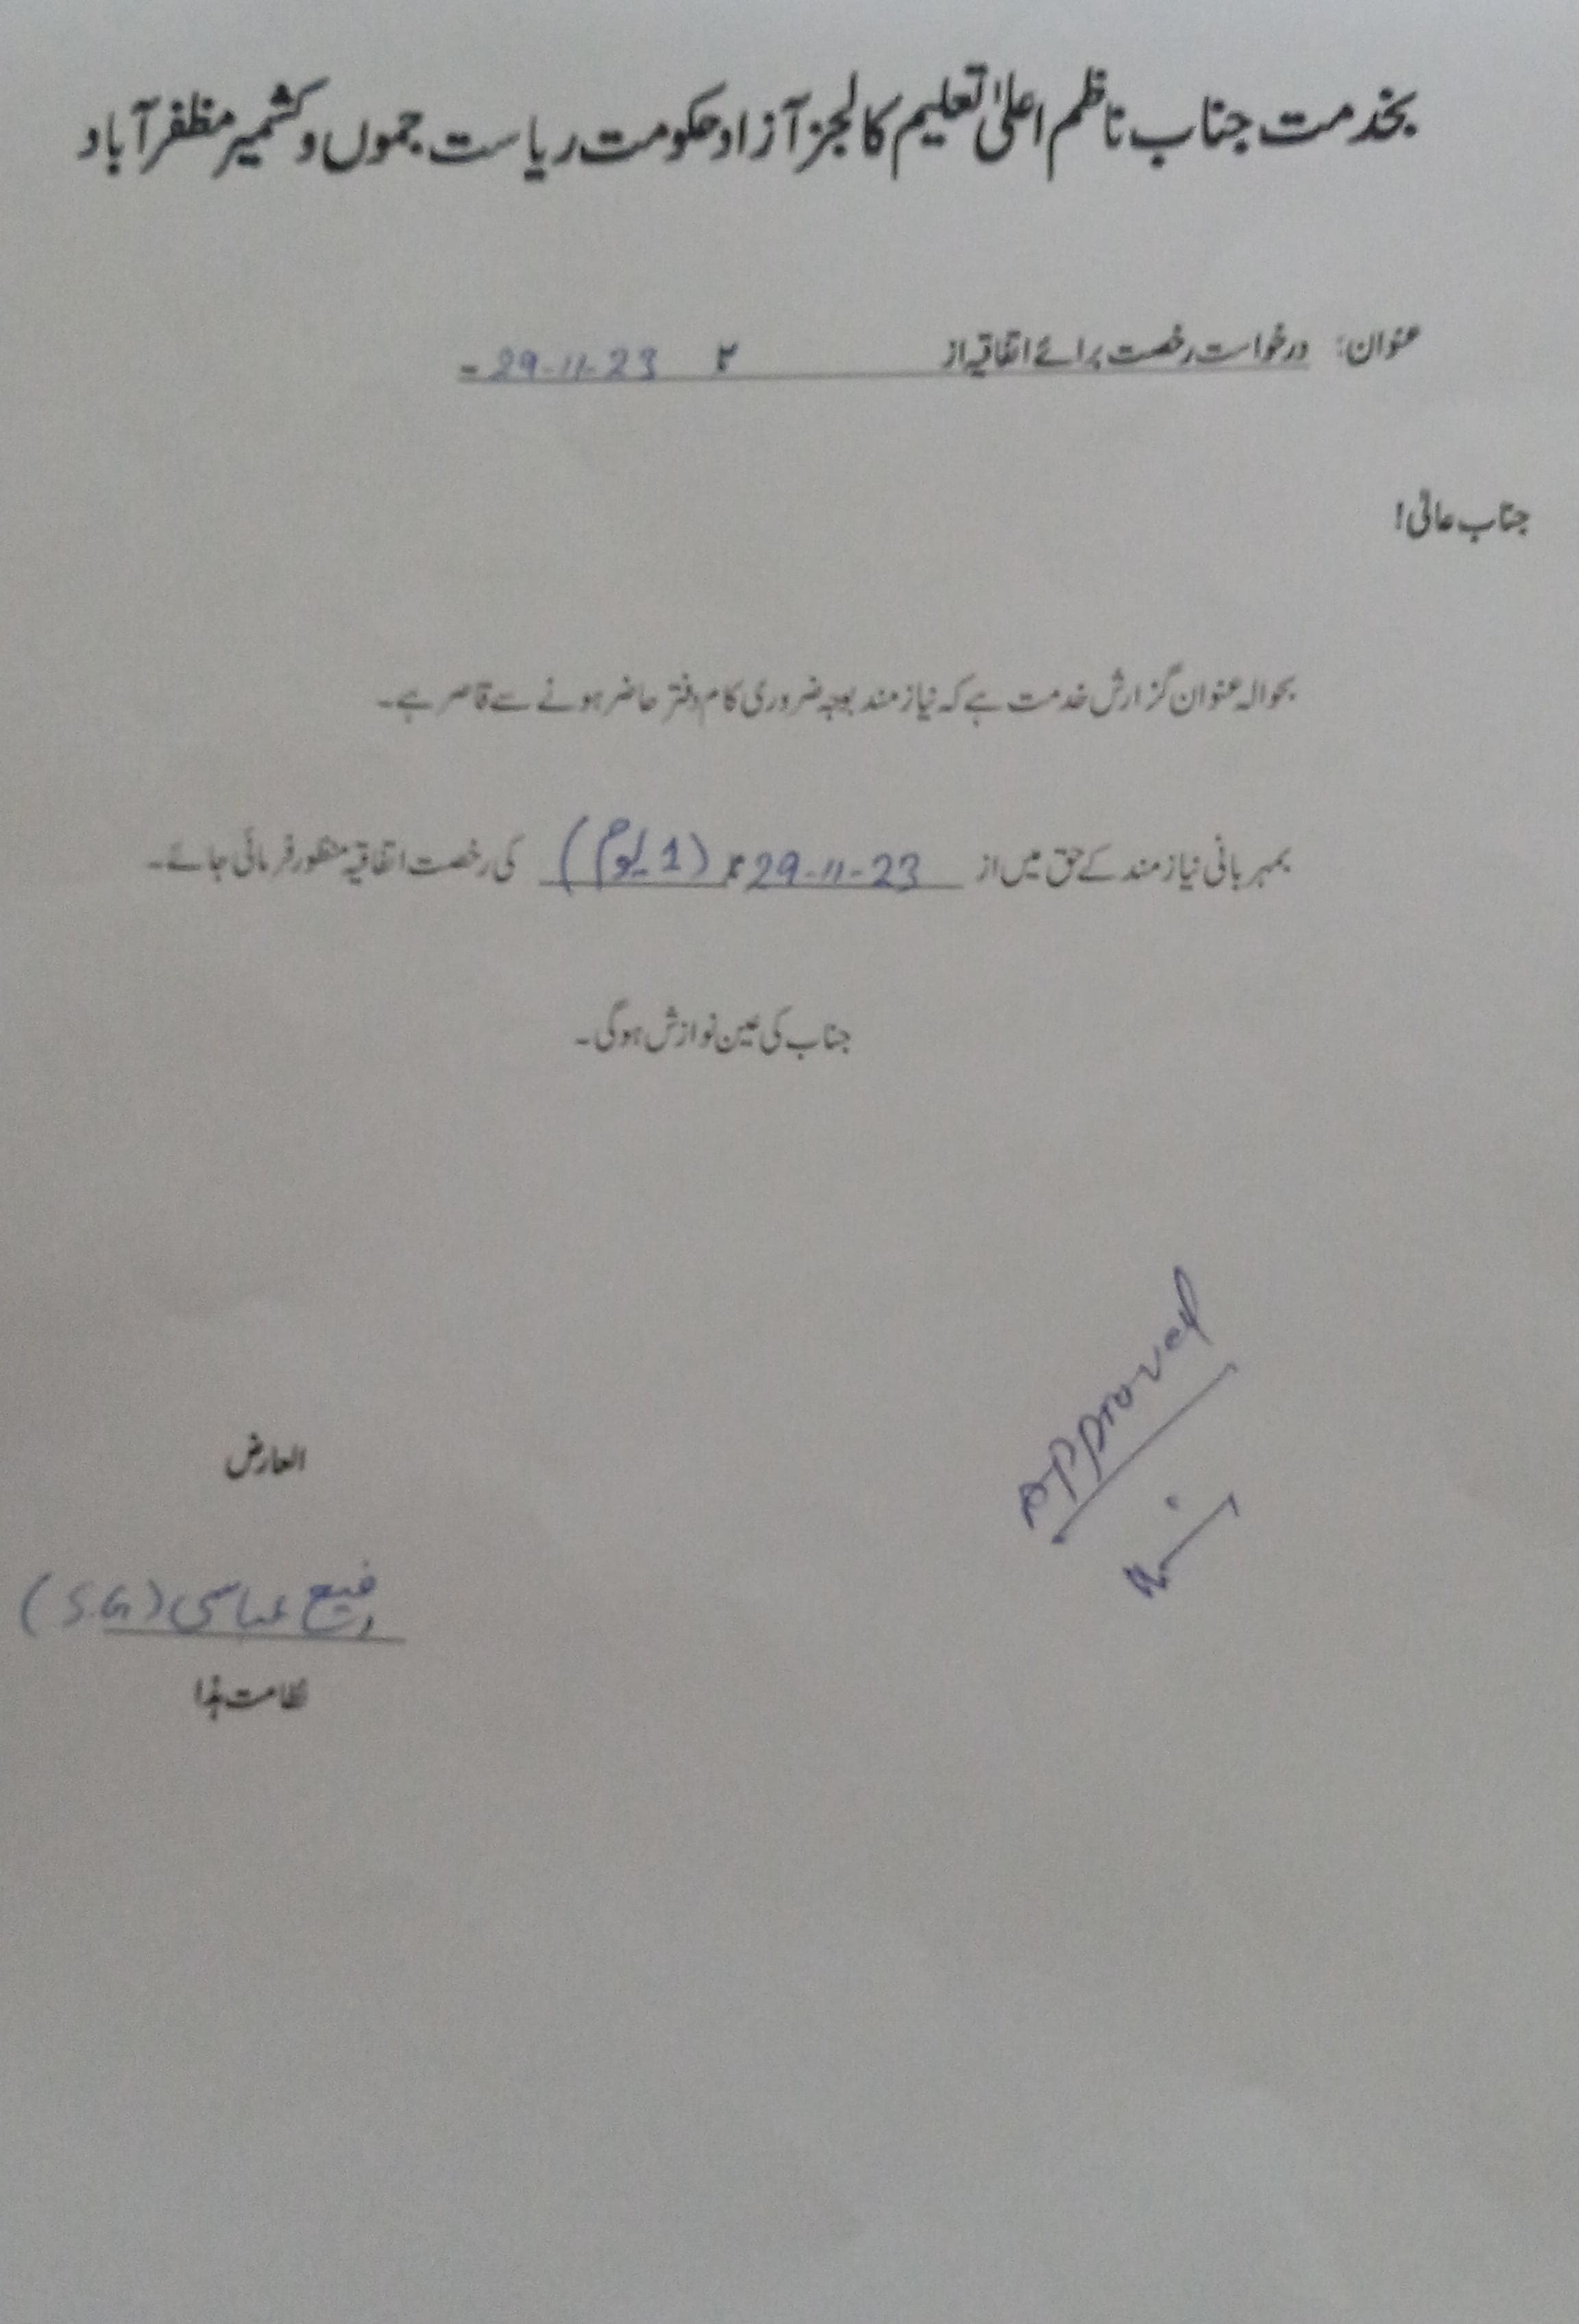 بخدمت جناب ناظم اعلیٰ تعلیم کالجز آزاد حکومت ریاست جموں و کشمیر مظفر آباد
عنوان: درخواست رخصت برائے اتفاقیہ از تا 29-11-23 -
جناب عالی!
بحوالہ عنوان گزارش خدمت ہے کہ نیاز مند بوجہ ضروری کام دفتر حاضر ہونے سے قاصر ہے۔
بمہربانی نیاز مند کے حق میں از 29-11-23 تا (1 یوم) کی رخصت اتفاقیہ منظور فرمائی جائے۔
جناب کی عین نوازش ہوگی۔
Approved
العارض
رفیع عباسی (S.G)
نظامت ہذا